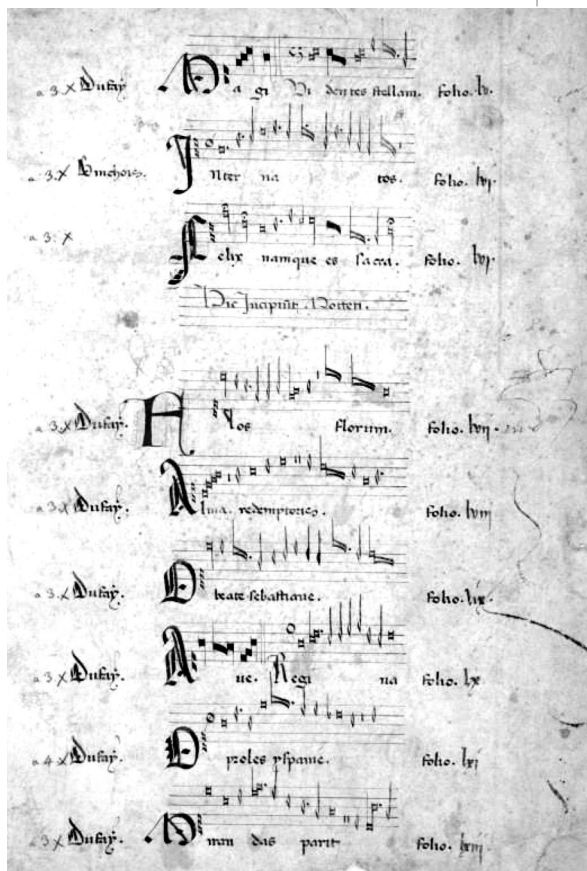 a 3. X Dufaÿ. Magi Videntes stellam. folio. lv.
a 3. X Binchois. Inter natos. folio. lvj.
a 3. X Felix namque es sacra. folio. lvj.
Hic Incipiūt Moteti.
a 3. X Dufaÿ. Flos florum. folio. lvij.
a 3 X Dufaÿ. Alma. redemptoris. folio. lviij
a 3. X Dufaÿ. O beate sebastiane. folio. lix
a 3 X Dufaÿ. Aue. Regina folio. lx
a 4 X Dufaÿ. O proles yspanie. folio. lxj
a 3 X Dufaÿ. parit folio.